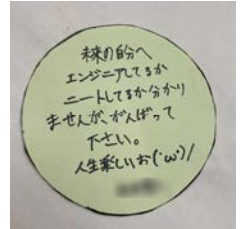 未来の自分へ
エンジニアしてるか
ニートしてるか分かり
ませんが、がんばって
下さい。
人生楽しいお(･ω･)/